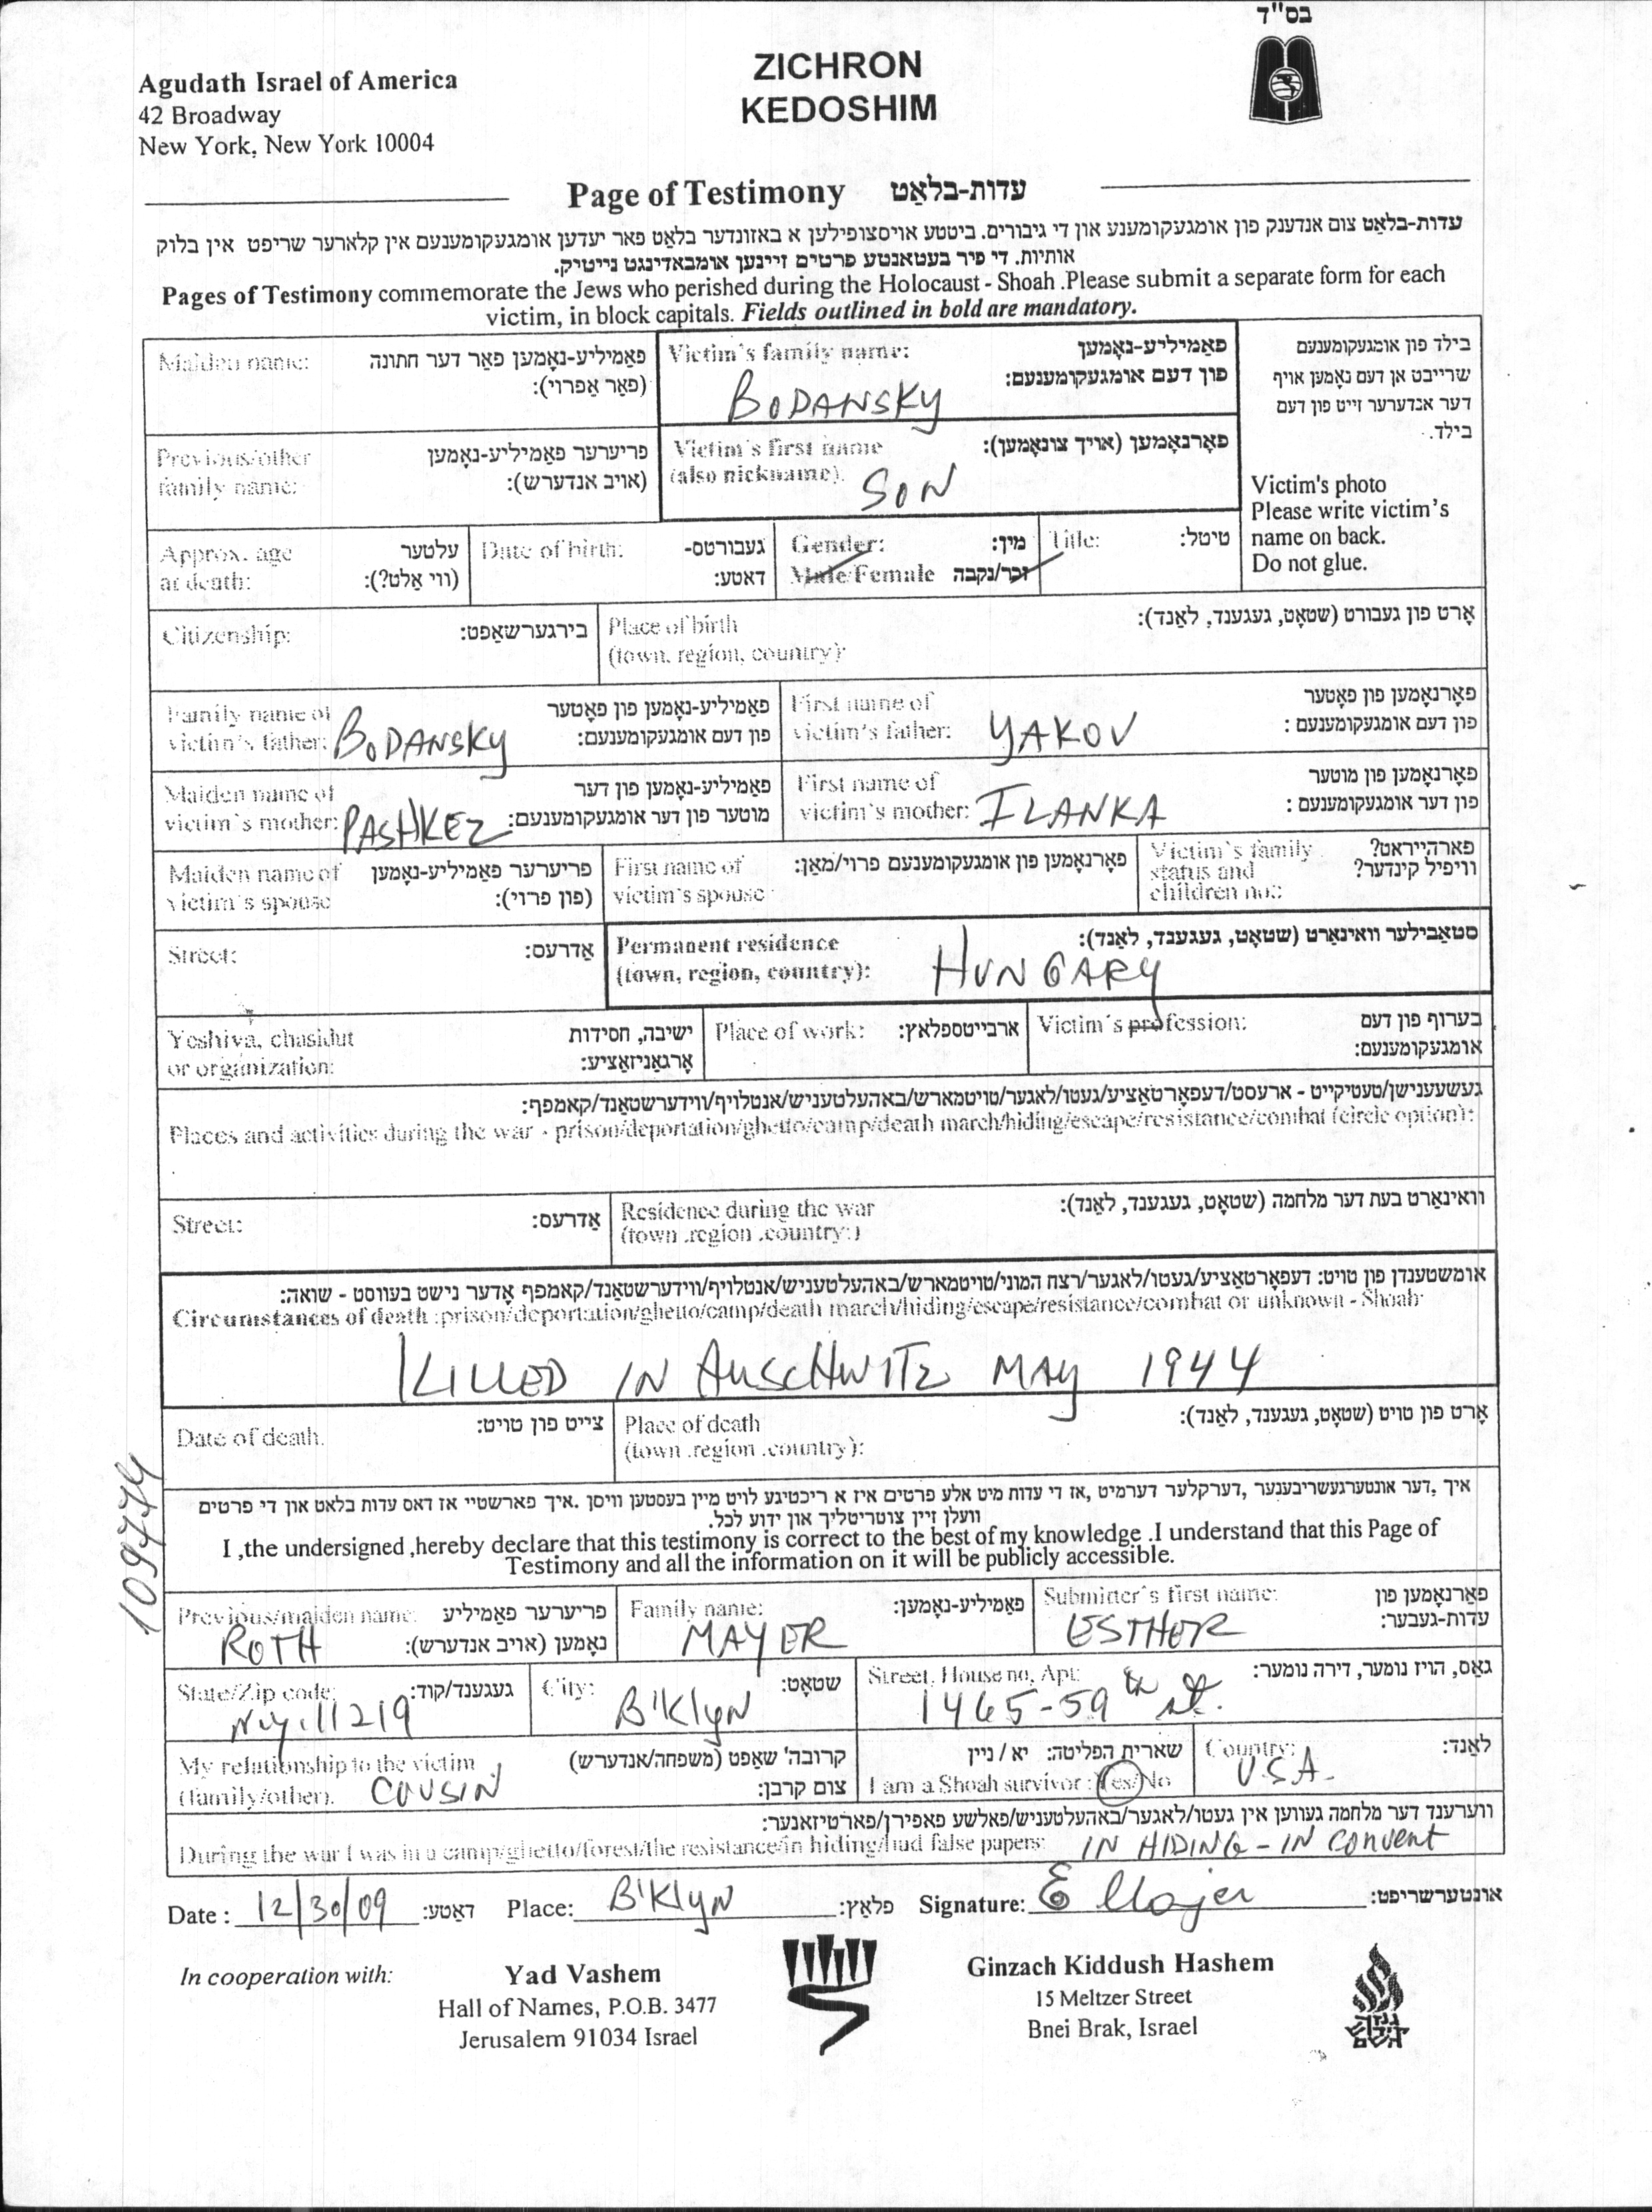 בס"ד
Agudath Israel of America
42 Broadway
New York, New York 10004
ZICHRON
KEDOSHIM
Page of Testimony עדות-בלאַט
עדות-בלאַט צום אנדענק פון אומגעקומענע און די גיבורים. ביטטע אויסצופילען א באזונדער בלאַט פאר יעדען אומגעקומענעם אין קלארער שריפט אין בלוק
אותיות. די פיר בעטאנטע פרטים זיינען אומבאדינגט נייטיק.
Pages of Testimony commemorate the Jews who perished during the Holocaust - Shoah .Please submit a separate form for each
victim, in block capitals. Fields outlined in bold are mandatory.
Maiden name: פאַמיליע-נאָמען פאַר דער חתונה
(פאַר אַפרוי):
Victim's family name: פאַמיליע-נאָמען
פון דעם אומגעקומענעם:
BODANSKY
בילד פון אומגעקומענעם
שרייבט אן דעם נאָמען אויף
דער אנדערער זייט פון דעם
בילד.
Victim's photo
Please write victim's
name on back.
Do not glue.
Previous/other פריערער פאַמיליע-נאָמען
family name: (אויב אנדערש):
Victim's first name פאָרנאָמען (אויך צונאָמען):
(also nickname). SON
Approx. age עלטער
at death: (ווי אַלט?):
Date of birth: געבורטס-
דאטע:
Gender: מין:
Male/Female זכר/נקבה
Title: טיטל:
Citizenship: בירגערשאַפט:
Place of birth אָרט פון געבורט (שטאָט, געגענד, לאַנד):
(town, region, country):
Family name of פאַמיליע-נאָמען פון פאָטער
victim's father: BODANSKY פון דעם אומגעקומענעם:
First name of פאָרנאָמען פון פאָטער
victim's father: YAKOV פון דעם אומגעקומענעם :
Maiden name of פאַמיליע-נאָמען פון דער
victim's mother: PASHKEZ מוטער פון דער אומגעקומענעם:
First name of פאָרנאָמען פון מוטער
victim's mother: ILANKA פון דער אומגעקומענעם :
Maiden name of פריערער פאַמיליע-נאָמען
victim's spouse (פון פרוי):
First name of פאָרנאָמען פון אומגעקומענעם פרוי/מאַן:
victim's spouse
Victim's family פארהייראט?
status and וויפיל קינדער?
children no.:
Street: אַדרעס:
Permanent residence סטאַבילער וואוינאָרט (שטאָט, געגענד, לאַנד):
(town, region, country): HUNGARY
Yeshiva, chasidut ישיבה, חסידות
or organization: אָרגאַניזאַציע:
Place of work: ארבייטספלאַץ:
Victim's profession: בערוף פון דעם
אומגעקומענעם:
געשעענישן/טעטיקייט - ארעסט/דעפאָרטאַציע/געטו/לאגער/טויטמארש/באהעלטעניש/אנטלויף/ווידערשטאַנד/קאמפף:
Places and activities during the war - prison/deportation/ghetto/camp/death march/hiding/escape/resistance/combat (circle option):
Street: אַדרעס:
Residence during the war וואוינארט בעת דער מלחמה (שטאָט, געגענד, לאַנד):
(town .region .country:)
אומשטענדן פון טויט: דעפאָרטאַציע/געטו/לאגער/רצח המוני/טויטמארש/באהעלטעניש/אנטלויף/ווידערשטאַנד/קאמפף אָדער נישט בעווסט - שואה:
Circumstances of death :prison/deportation/ghetto/camp/death march/hiding/escape/resistance/combat or unknown - Shoah
KILLED IN AUSCHWITZ MAY 1944
Date of death. צייט פון טויט:
Place of death אָרט פון טויט (שטאָט, געגענד, לאַנד):
(town .region .country):
109774
איך ,דער אונטערגעשריבענער ,דערקלער דערמיט ,אז די עדות מיט אלע פרטים איז א ריכטיגע לויט מיין בעסטען וויסן .איך פארשטיי אז דאס עדות בלאט און די פרטים
וועלן זיין צוטריטליך און ידוע לכל.
I ,the undersigned ,hereby declare that this testimony is correct to the best of my knowledge .I understand that this Page of
Testimony and all the information on it will be publicly accessible.
Previous/maiden name: פריערער פאַמיליע
ROTH נאָמען (אויב אנדערש):
Family name: פאַמיליע-נאָמען:
MAYER
Submitter's first name: פאָרנאָמען פון
ESTHER עדות-געבער:
State/Zip code: געגענד/קוד:
N.Y. 11219
City: שטאָט:
B'KlyN
Street, House no, Apt: גאַס, הויז נומער, דירה נומער:
1465-59 th st.
My relationship to the victim קרובה' שאַפט (משפחה/אנדערש)
(family/other). COUSIN צום קרבן:
שארית הפליטה: יא / ניין
I am a Shoah survivor : Yes/No
Country: לאַנד:
U.S.A.
ווערענד דער מלחמה געווען אין געטו/לאגער/באהעלטעניש/פאלשע פאפירן/פארטיזאנער:
During the war I was in a camp/ghetto/forest/the resistance/in hiding/had false papers: IN HIDING - IN CONVENT
Date : 12/30/09 דאַטע: Place: B'KlyN פלאַץ: Signature: E Mayer אונטערשריפט:
In cooperation with:
Yad Vashem
Hall of Names, P.O.B. 3477
Jerusalem 91034 Israel
Ginzach Kiddush Hashem
15 Meltzer Street
Bnei Brak, Israel
גנזך
קידוש
השם